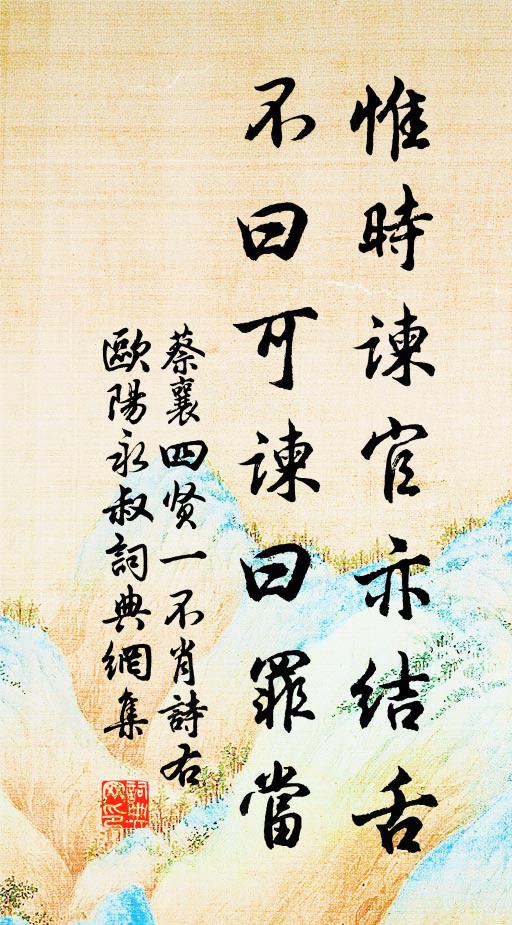 惟時諫官亦結舌
不曰可諫曰罪當
蔡襄四贤一不肖詩右
歐陽永叔詞典網集